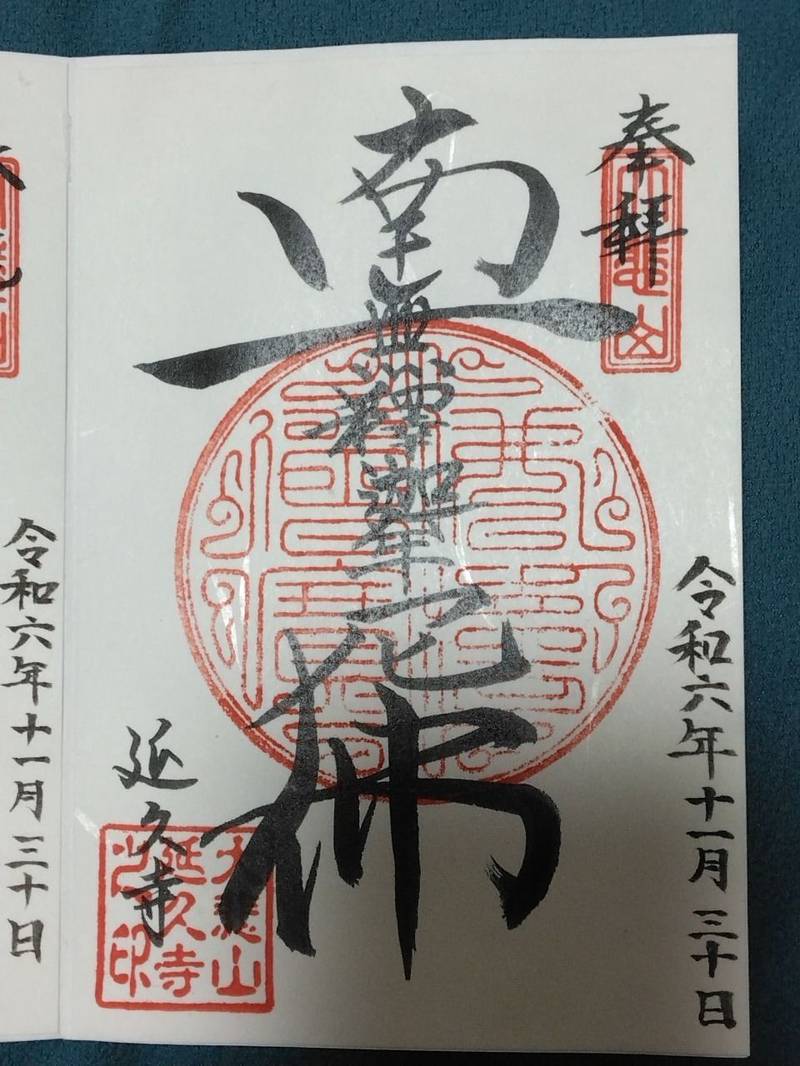 奉拝
令和六年十一月三十日
南無釋迦牟尼佛
延久寺
延久寺
之印
令和六年十一月三十日